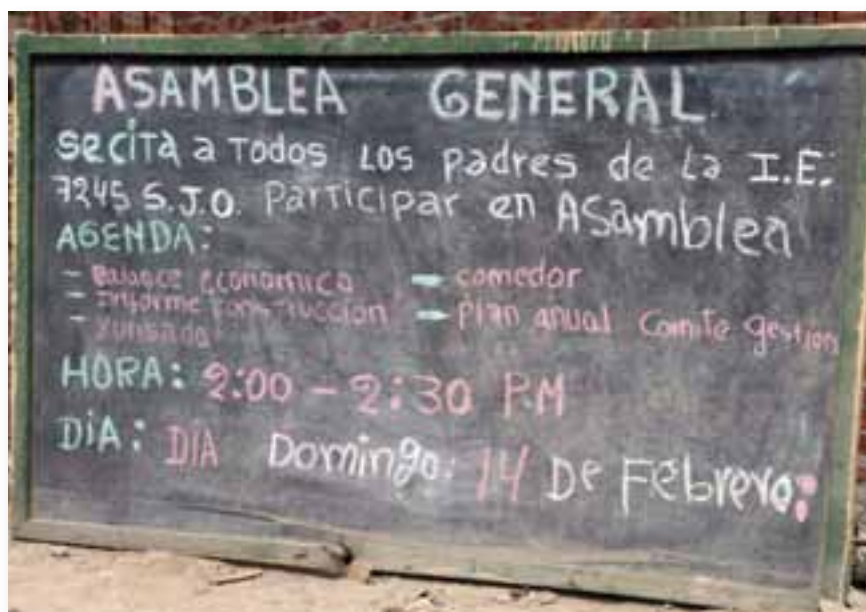 ASAMBLEA GENERAL
SeCITA a TODOS LOS padres de La I.E.
7245 S.J.O. PARTICIPAR en ASamblea
AGENDA:
- Balance economica - comedor
- Informe construccion - Plan anual Comite gestión
- yunsada
HORA: 2:00 - 2:30 P.M
DIA: DIA Domingo: 14 De Febrero: